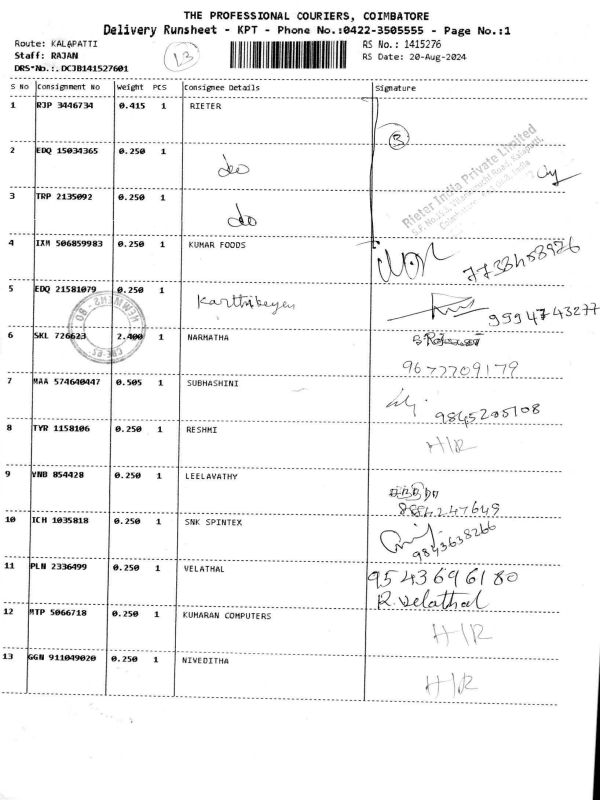 THE PROFESSIONAL COURIERS, COIMBATORE
Delivery Runsheet - KPT - Phone No.:0422-3505555 - Page No.:1
Route: KALAPATTI
Staff: RAJAN
DRS-No.:.DCJB141527601
13
RS No.: 1415276
RS Date: 20-Aug-2024
S No Consignment No Weight PCS Consignee Details Signature
1 RJP 3446734 0.415 1 RIETER
3
Rieter India Private Limited
2 EDQ 15034365 0.250 1 do
3 TRP 2135092 0.250 1 do
4 IXM 506859983 0.250 1 KUMAR FOODS
5 EDQ 21581079 0.250 1 Karthikeyen
6 SKL 726623 2.400 1 NARMATHA
9677709179
7 MAA 574640447 0.505 1 SUBHASHINI
9845205108
8 TYR 1158106 0.250 1 RESHMI H/R
9 VNB 854428 0.250 1 LEELAVATHY
10 ICH 1035818 0.250 1 SNK SPINTEX
9843638266
11 PLN 2336499 0.250 1 VELATHAL 9543696180
R. Velathal
12 MTP 5066718 0.250 1 KUMARAN COMPUTERS H/R
13 GGN 911049020 0.250 1 NIVEDITHA H/R